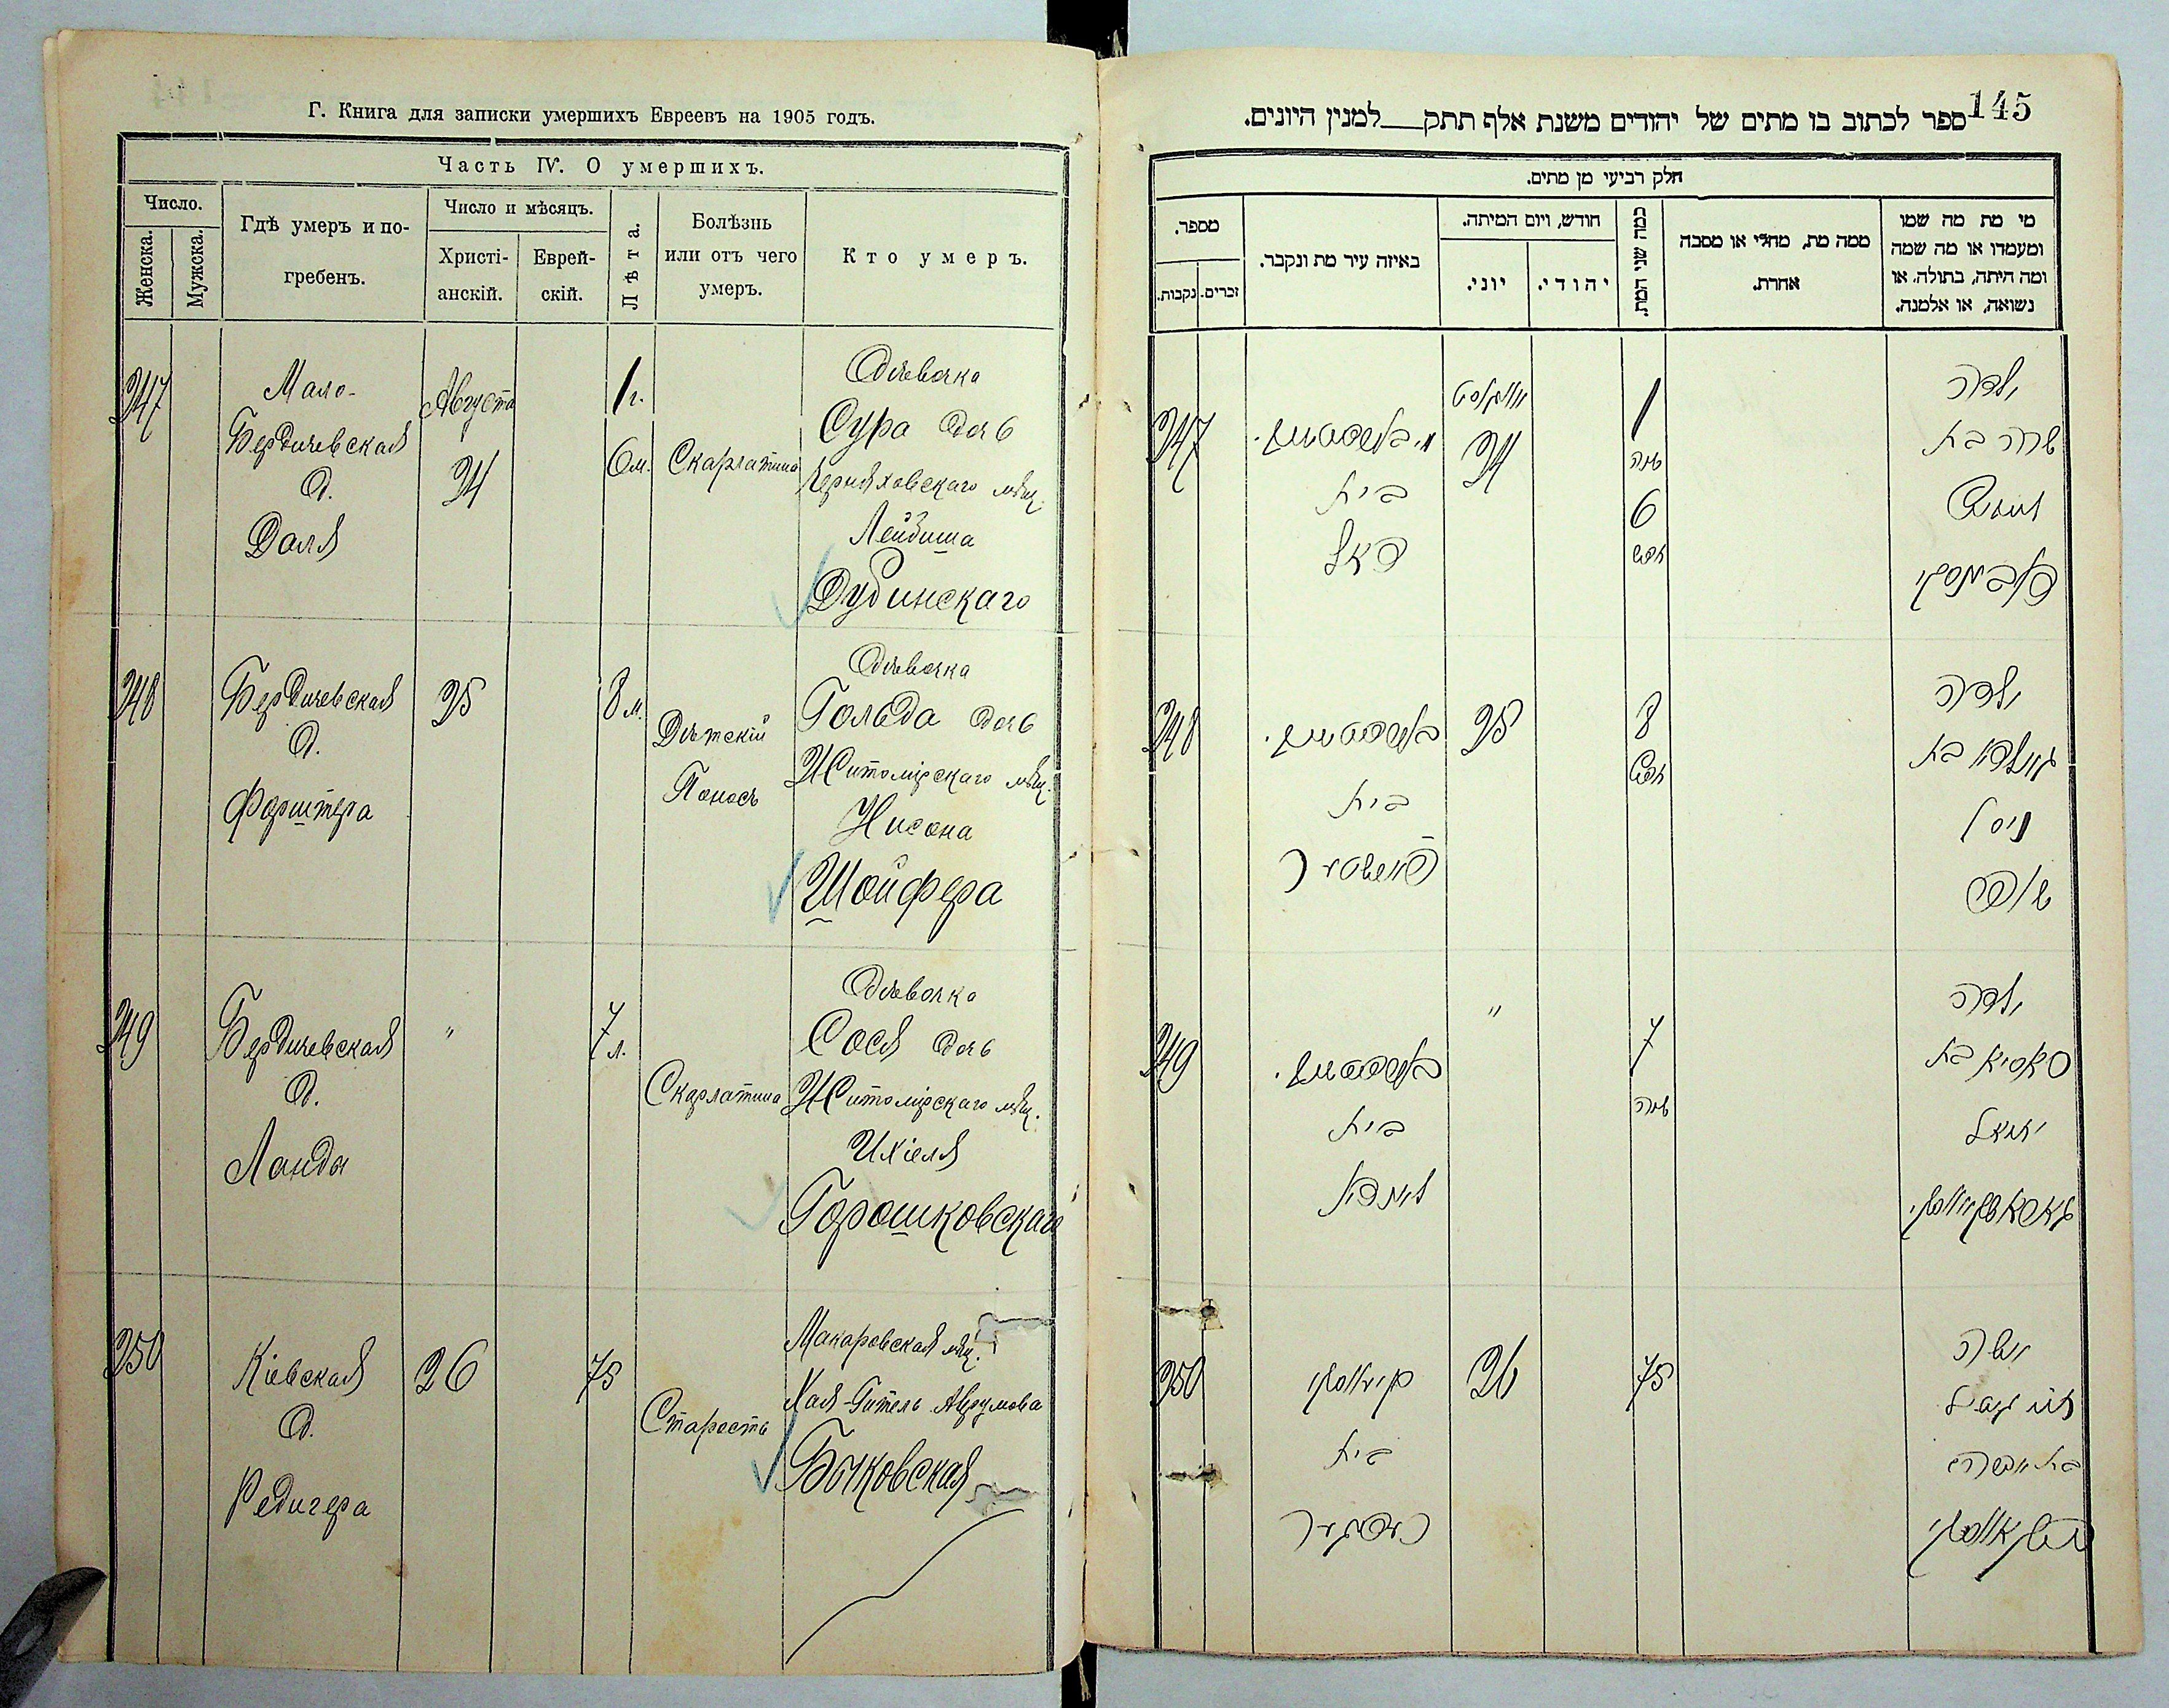 Г. Книга для записки умершихъ Евреевъ на 1905 годъ.
Часть IV. О умершихъ.
Число.
Женска.
Мужска.
Гдѣ умеръ и по-
гребенъ.
Число и мѣсяцъ.
Христі-
анскій.
Еврей-
скій.
Лѣта.
Болѣзнь
или отъ чего
умеръ.
Кто умеръ.
247
Мало-
Бердичевская
д.
Даля
Августа
24
1 г.
6 м.
Скарлатина
Дѣвочка
Сура дочь
Черняховскаго мѣщ.
Лейбиша
Дубинскаго
248
Бердичевская
д.
Форштера
25
8 м.
Дѣтскій
Поносъ
Дѣвочка
Гольда дочь
Житомірскаго мѣщ.
Нисона
Шойфера
249
Бердичевская
д.
Ланды
"
7 л.
Скарлатина
Дѣвочка
Сося дочь
Житомірскаго мѣщ.
Ихіеля
Горошковскаго
250
Кіевская
д.
Редигера
26
75
Старость
Макаровская мѣщ.
Хая-Гитель Аврумова
Бычковская
145
ספר לכתוב בו מתים של יהודים משנת אלף תתק__למנין היונים.
חלק רביעי מן מתים.
מספר.
נקבות.
זכרים.
באיזה עיר מת ונקבר.
חודש, ויום המיתה.
יוני.
יהודי.
כמה שני המת.
ממה מת, מחלי או מסבה
אחרת.
מי מת מה שמו
ומעמדו או מה שמה
ומה היתה, בתולה, או
נשואה, או אלמנה.
247
בית
24
1
שנה
6
חדש
ילדה
שרה בת
248
בית
25
8
חדש
ילדה
גולדא בת
ניסן
249
בית
לנדא
"
7
שנה
ילדה
סאסיא בת
יחיאל
250
בית
26
75